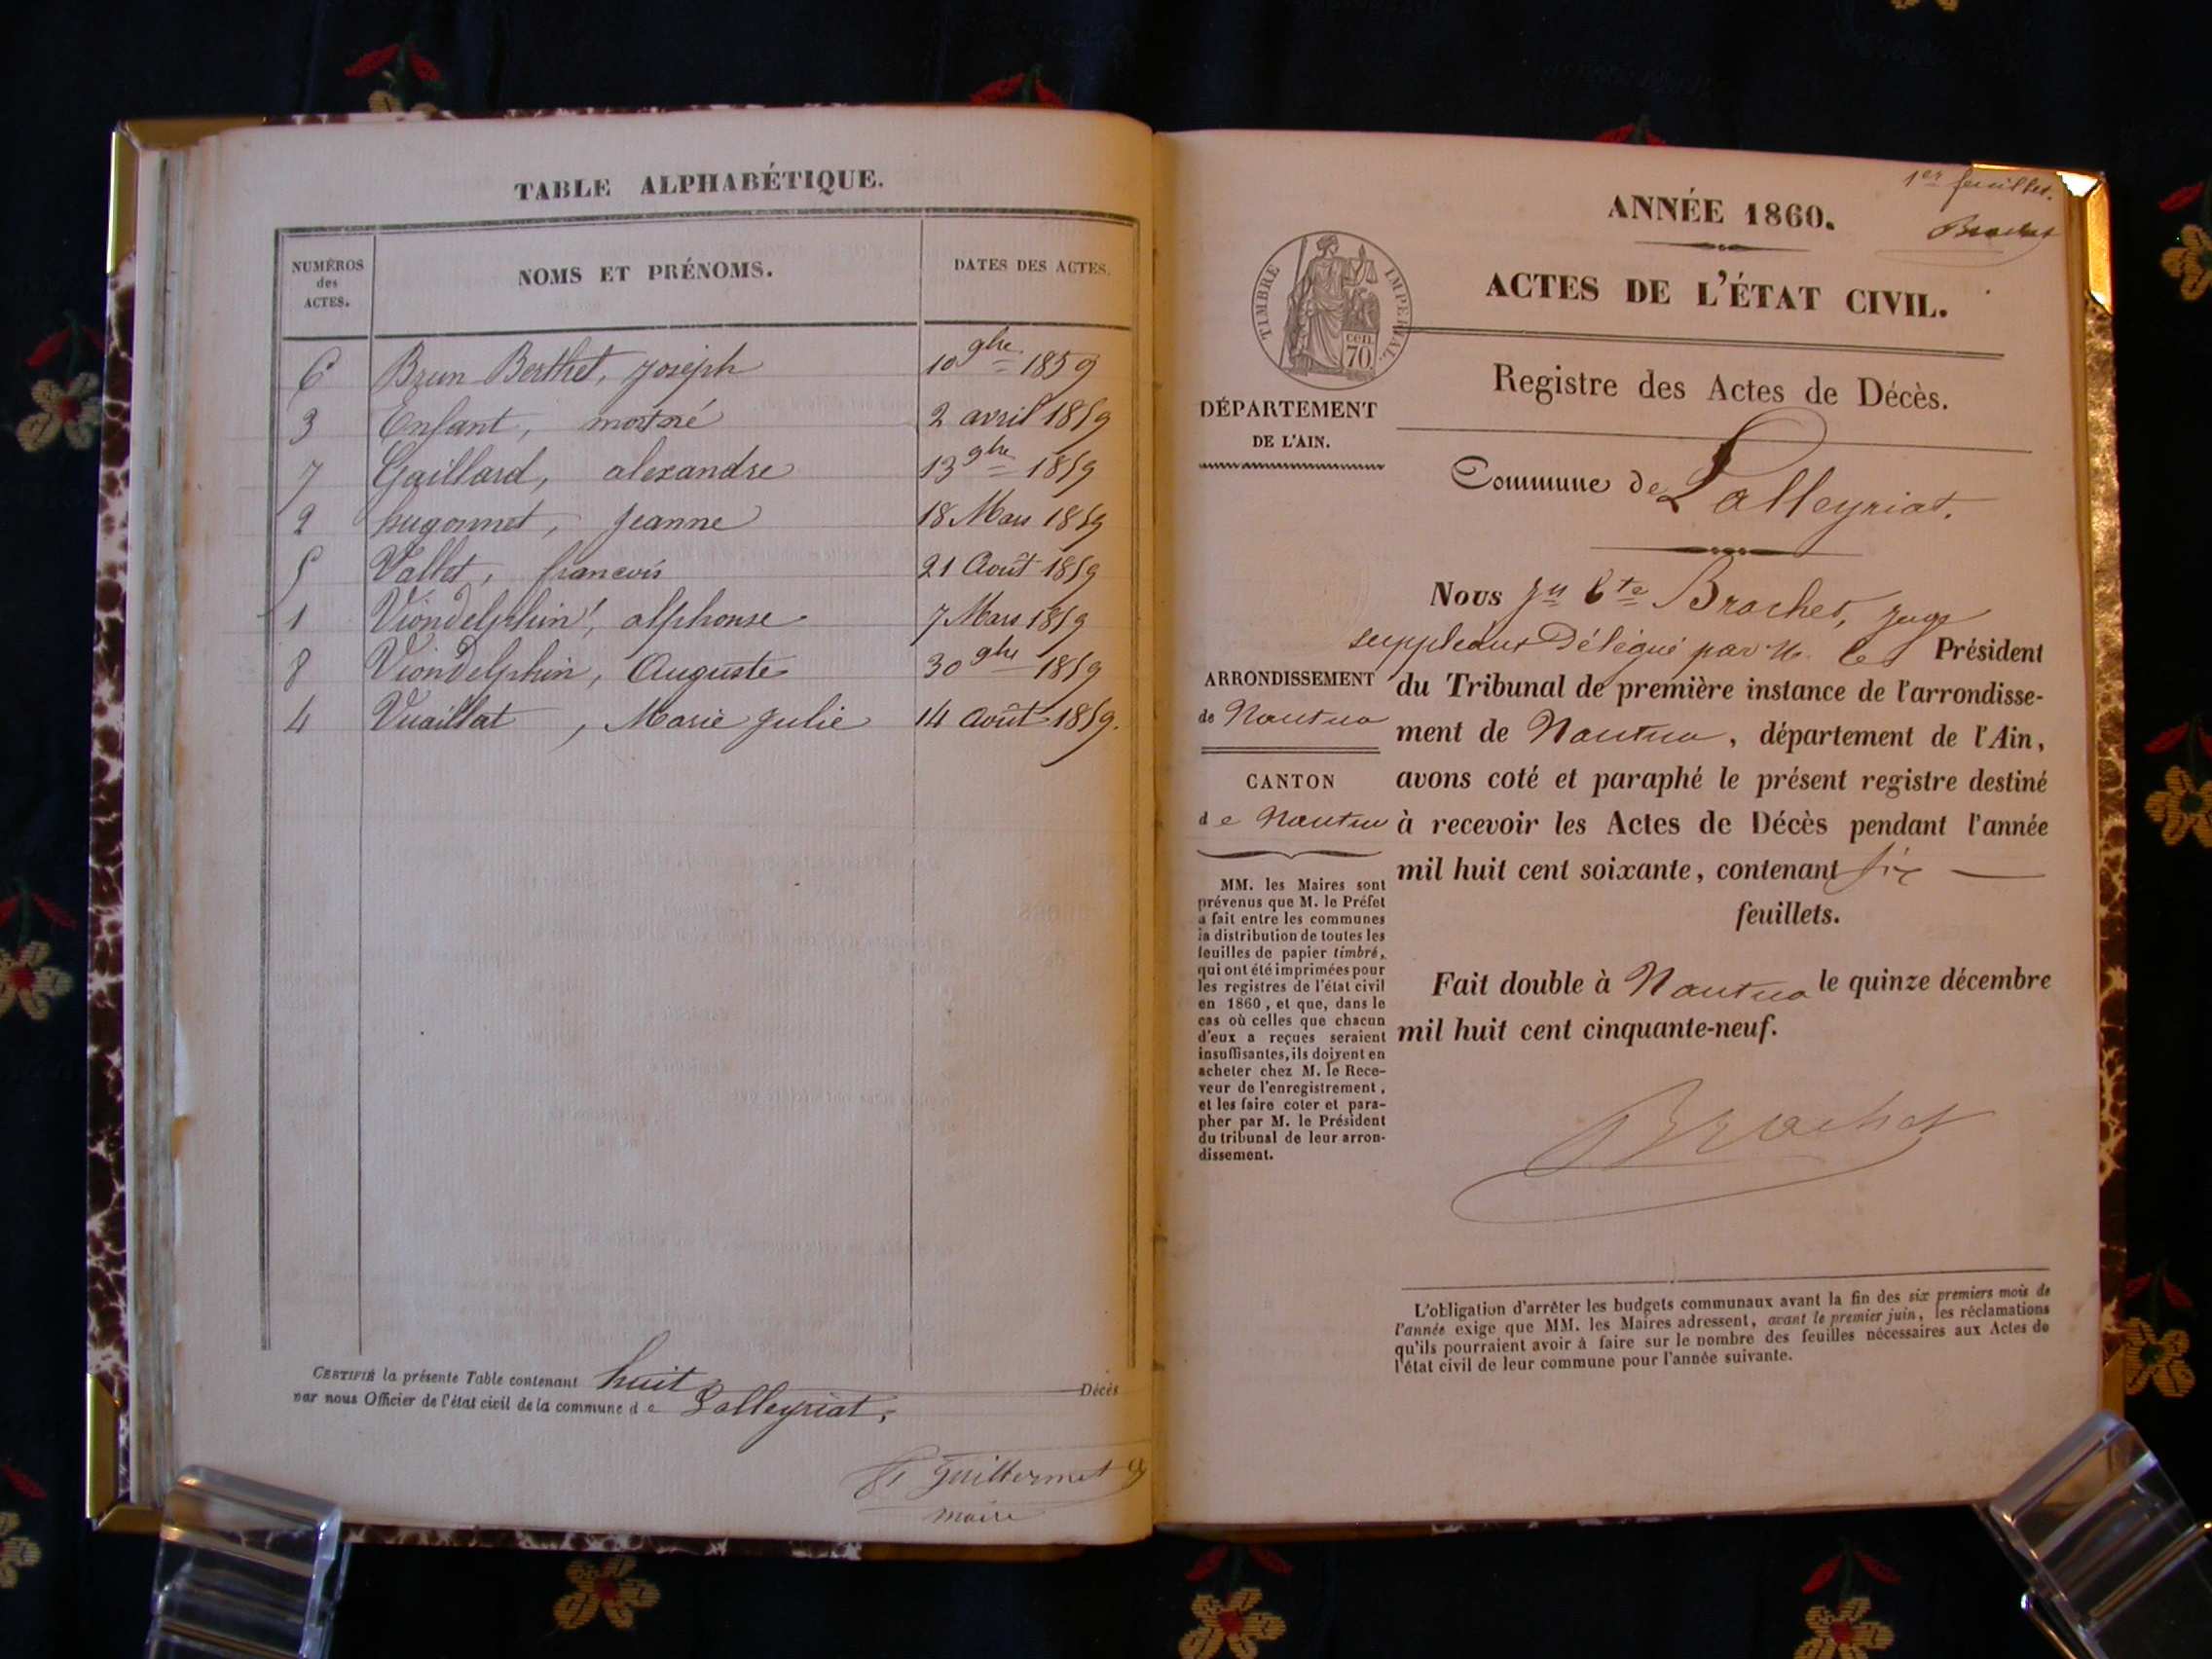 TABLE ALPHABÉTIQUE.
NUMÉROS des ACTES.
NOMS ET PRÉNOMS.
DATES DES ACTES.
6 Brun-Berthet, joseph 10 9bre 1859
3 Enfant, mortné 2 avril 1859
7 Gaillard, alexandre 13 9bre 1859
2 hugonnet, jeanne 18 Mars 1859
5 Vallet, francois 21 Août 1859
1 Viondelphin, alphonse 7 Mars 1859
8 Viondelphin, Auguste 30 9bre 1859
4 Vuaillat, Marie julie 14 Août 1859.
CERTIFIÉ la présente Table contenant huit Décès
par nous Officier de l'état civil de la commune de Lalleyriat.
Guillermet
maire
1er feuillet.
Brochet
ANNÉE 1860.
ACTES DE L'ÉTAT CIVIL.
TIMBRE IMPERIAL.
cen. 70
Registre des Actes de Décès.
DÉPARTEMENT
DE L'AIN.
Commune de Lalleyriat.
Nous Jn Bte Brochet, juge
suppléant Délégué par M. le Président
du Tribunal de première instance de l'arrondisse-
ment de Nantua, département de l'Ain,
avons coté et paraphé le présent registre destiné
à recevoir les Actes de Décès pendant l'année
mil huit cent soixante, contenant six
feuillets.
Fait double à Nantua le quinze décembre
mil huit cent cinquante-neuf.
Brochet
ARRONDISSEMENT
de Nantua
CANTON
de Nantua
MM. les Maires sont
prévenus que M. le Préfet
a fait entre les communes
la distribution de toutes les
feuilles de papier timbré,
qui ont été imprimées pour
les registres de l'état civil
en 1860, et que, dans le
cas où celles que chacun
d'eux a reçues seraient
insuffisantes, ils doivent en
acheter chez M. le Rece-
veur de l'enregistrement,
et les faire coter et para-
pher par M. le Président
du tribunal de leur arron-
dissement.
L'obligation d'arrêter les budgets communaux avant la fin des six premiers mois de
l'année exige que MM. les Maires adressent, avant le premier juin, les réclamations
qu'ils pourraient avoir à faire sur le nombre des feuilles nécessaires aux Actes de
l'état civil de leur commune pour l'année suivante.